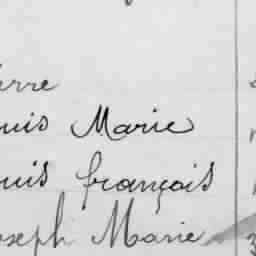 ierre
uis Marie
uis françois
oseph Marie